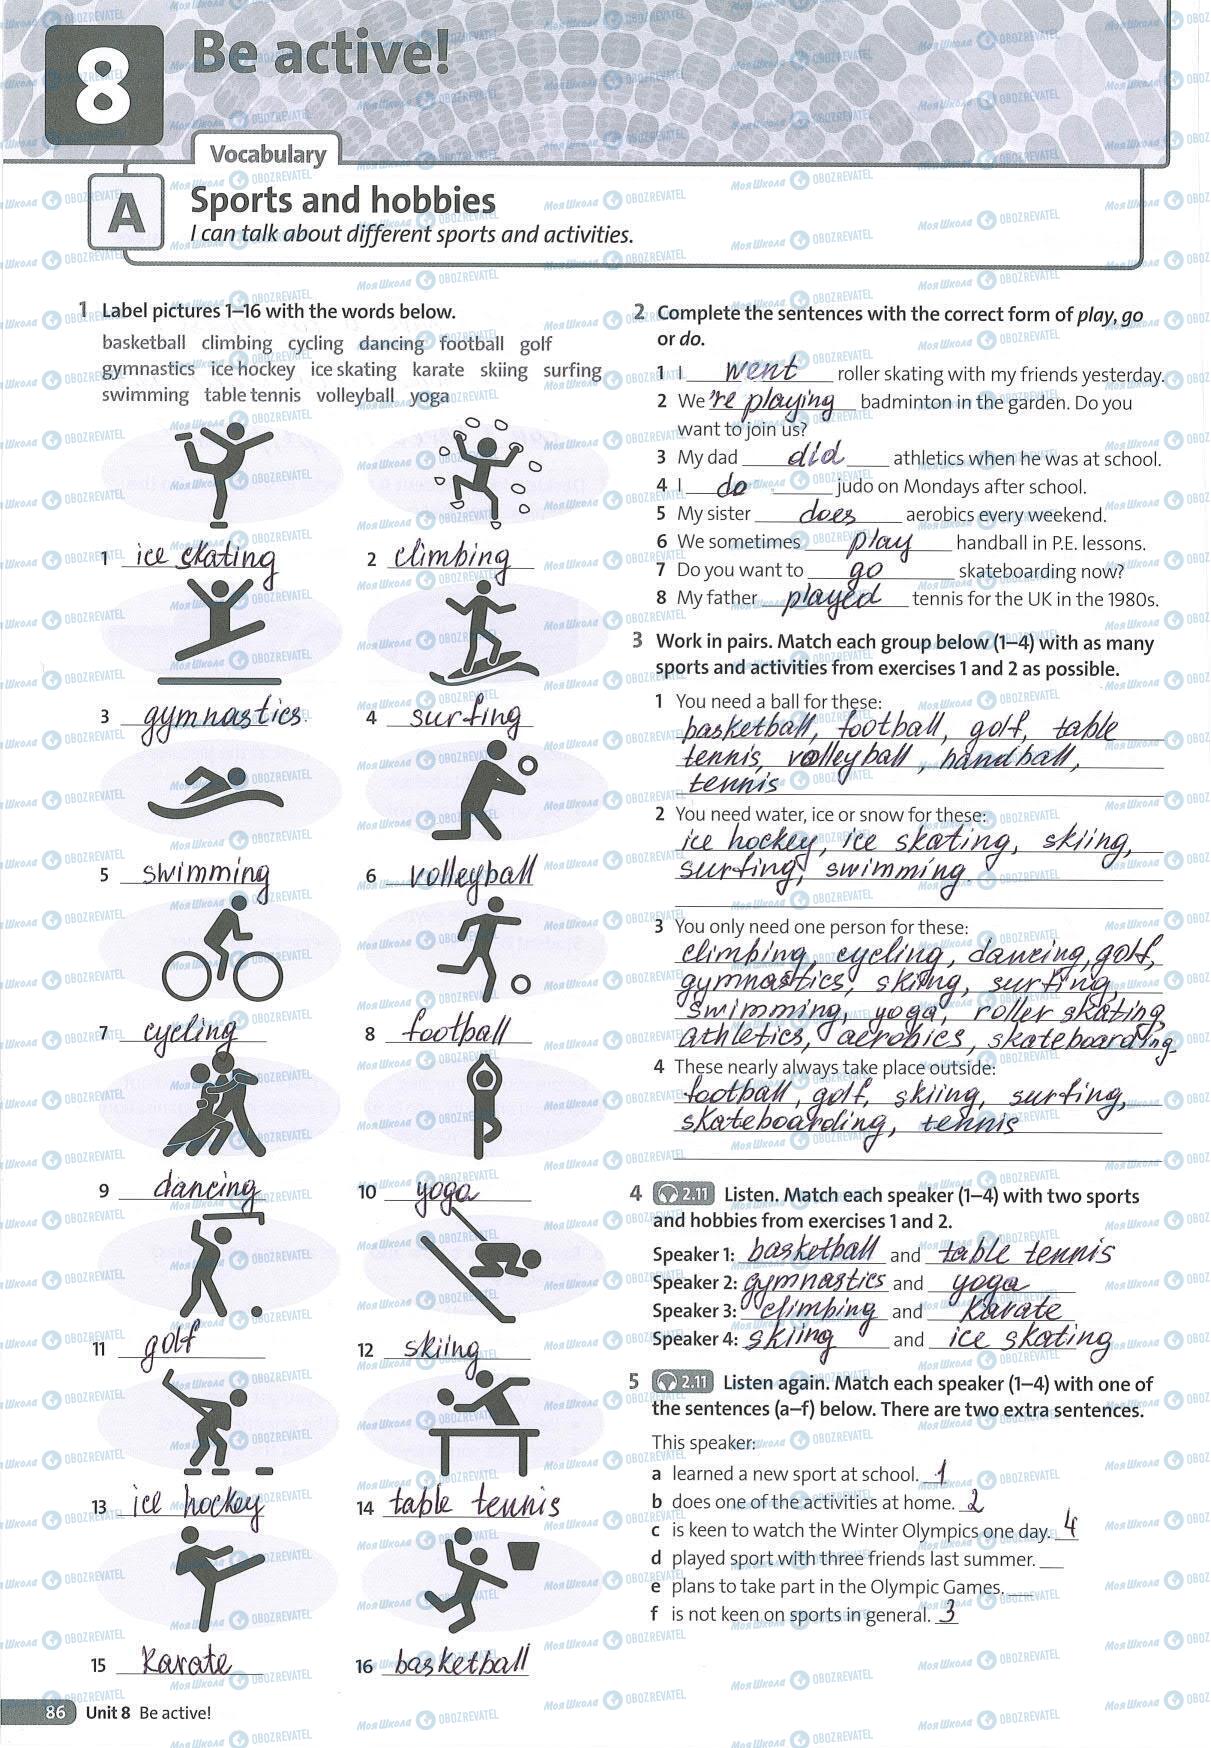 8
Be active!
Vocabulary
A
Sports and hobbies
I can talk about different sports and activities.
1 Label pictures 1–16 with the words below.
basketball climbing cycling dancing football golf
gymnastics ice hockey ice skating karate skiing surfing
swimming table tennis volleyball yoga
1 ice skating
2 climbing
3 gymnastics.
4 surfing
5 swimming
6 volleyball
7 cycling
8 football
9 dancing
10 yoga
11 golf
12 skiing
13 ice hockey
14 table tennis
15 karate
16 basketball
2 Complete the sentences with the correct form of play, go
or do.
1 I went roller skating with my friends yesterday.
2 We 're playing badminton in the garden. Do you
want to join us?
3 My dad did athletics when he was at school.
4 I do judo on Mondays after school.
5 My sister does aerobics every weekend.
6 We sometimes play handball in P.E. lessons.
7 Do you want to go skateboarding now?
8 My father played tennis for the UK in the 1980s.
3 Work in pairs. Match each group below (1–4) with as many
sports and activities from exercises 1 and 2 as possible.
1 You need a ball for these:
basketball, football, golf, table
tennis, volleyball, handball,
tennis
2 You need water, ice or snow for these:
ice hockey, ice skating, skiing,
surfing, swimming
3 You only need one person for these:
climbing, cycling, dancing, golf,
gymnastics, skiing, surfing,
swimming, yoga, roller skating,
athletics, aerobics, skateboarding
4 These nearly always take place outside:
football, golf, skiing, surfing,
skateboarding, tennis
4 2.11 Listen. Match each speaker (1–4) with two sports
and hobbies from exercises 1 and 2.
Speaker 1: basketball and table tennis
Speaker 2: gymnastics and yoga
Speaker 3: climbing and karate
Speaker 4: skiing and ice skating
5 2.11 Listen again. Match each speaker (1–4) with one of
the sentences (a–f) below. There are two extra sentences.
This speaker:
a learned a new sport at school. 1
b does one of the activities at home. 2
c is keen to watch the Winter Olympics one day. 4
d played sport with three friends last summer.
e plans to take part in the Olympic Games.
f is not keen on sports in general. 3
86 Unit 8 Be active!
Моя Школа OBOZREVATEL